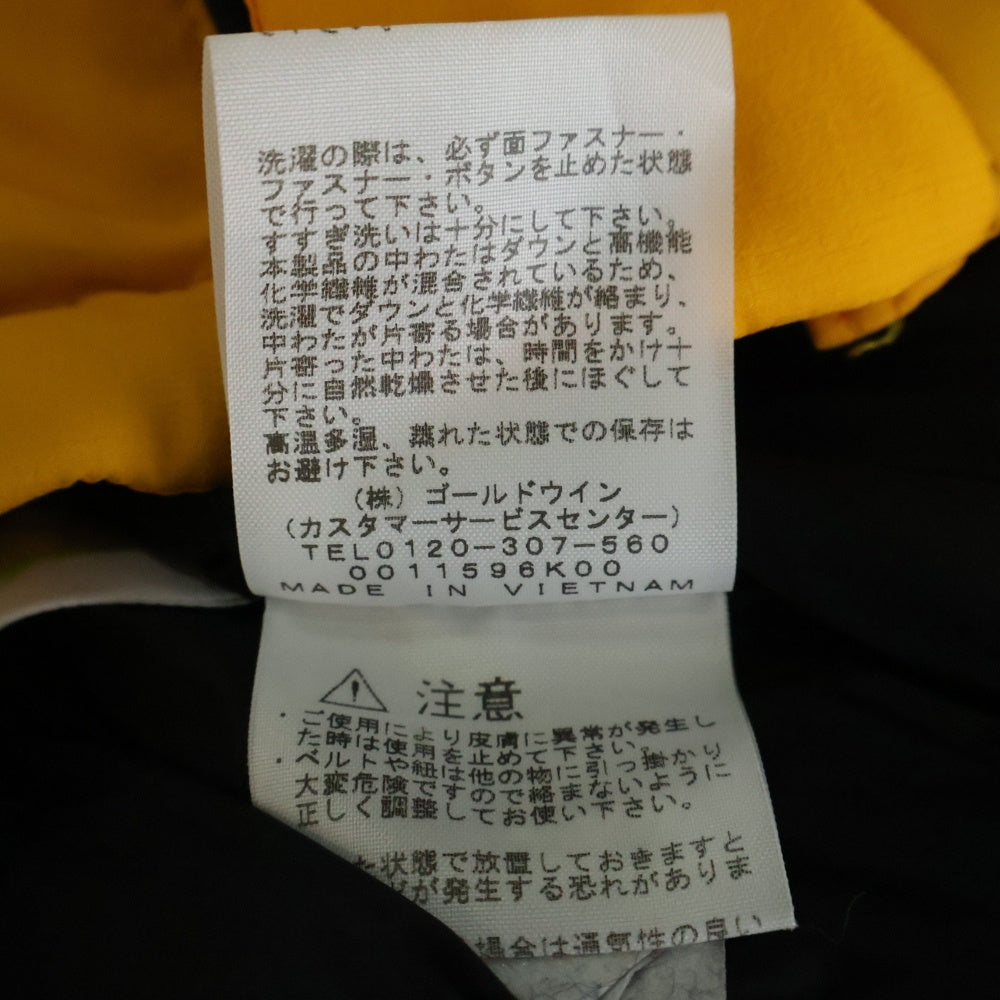 洗濯の際は、必ず面ファスナー・
ファスナー・ボタンを止めた状態
で行って下さい。
すすぎ洗いは十分にして下さい。
本製品の中わたはダウンと高機能
化学繊維が混合されているため、
洗濯でダウンと化学繊維が絡まり、
中わたが片寄る場合があります。
片寄った中わたは、時間をかけ十
分に自然乾燥させた後にほぐして
下さい。
高温多湿、蒸れた状態での保存は
お避け下さい。
(株)ゴールドウイン
(カスタマーサービスセンター)
TEL0120-307-560
0011596K00
MADE IN VIETNAM
注意
・ご使用により皮膚に異常が発生し
た時は使用を止めて下さい。
・ベルトや紐は他の物に引っ掛かり
大変危険ですので絡まないように
正しく調整してお使い下さい。
た状態で放置しておきますと
が発生する恐れがありま
場合は通気性の良い